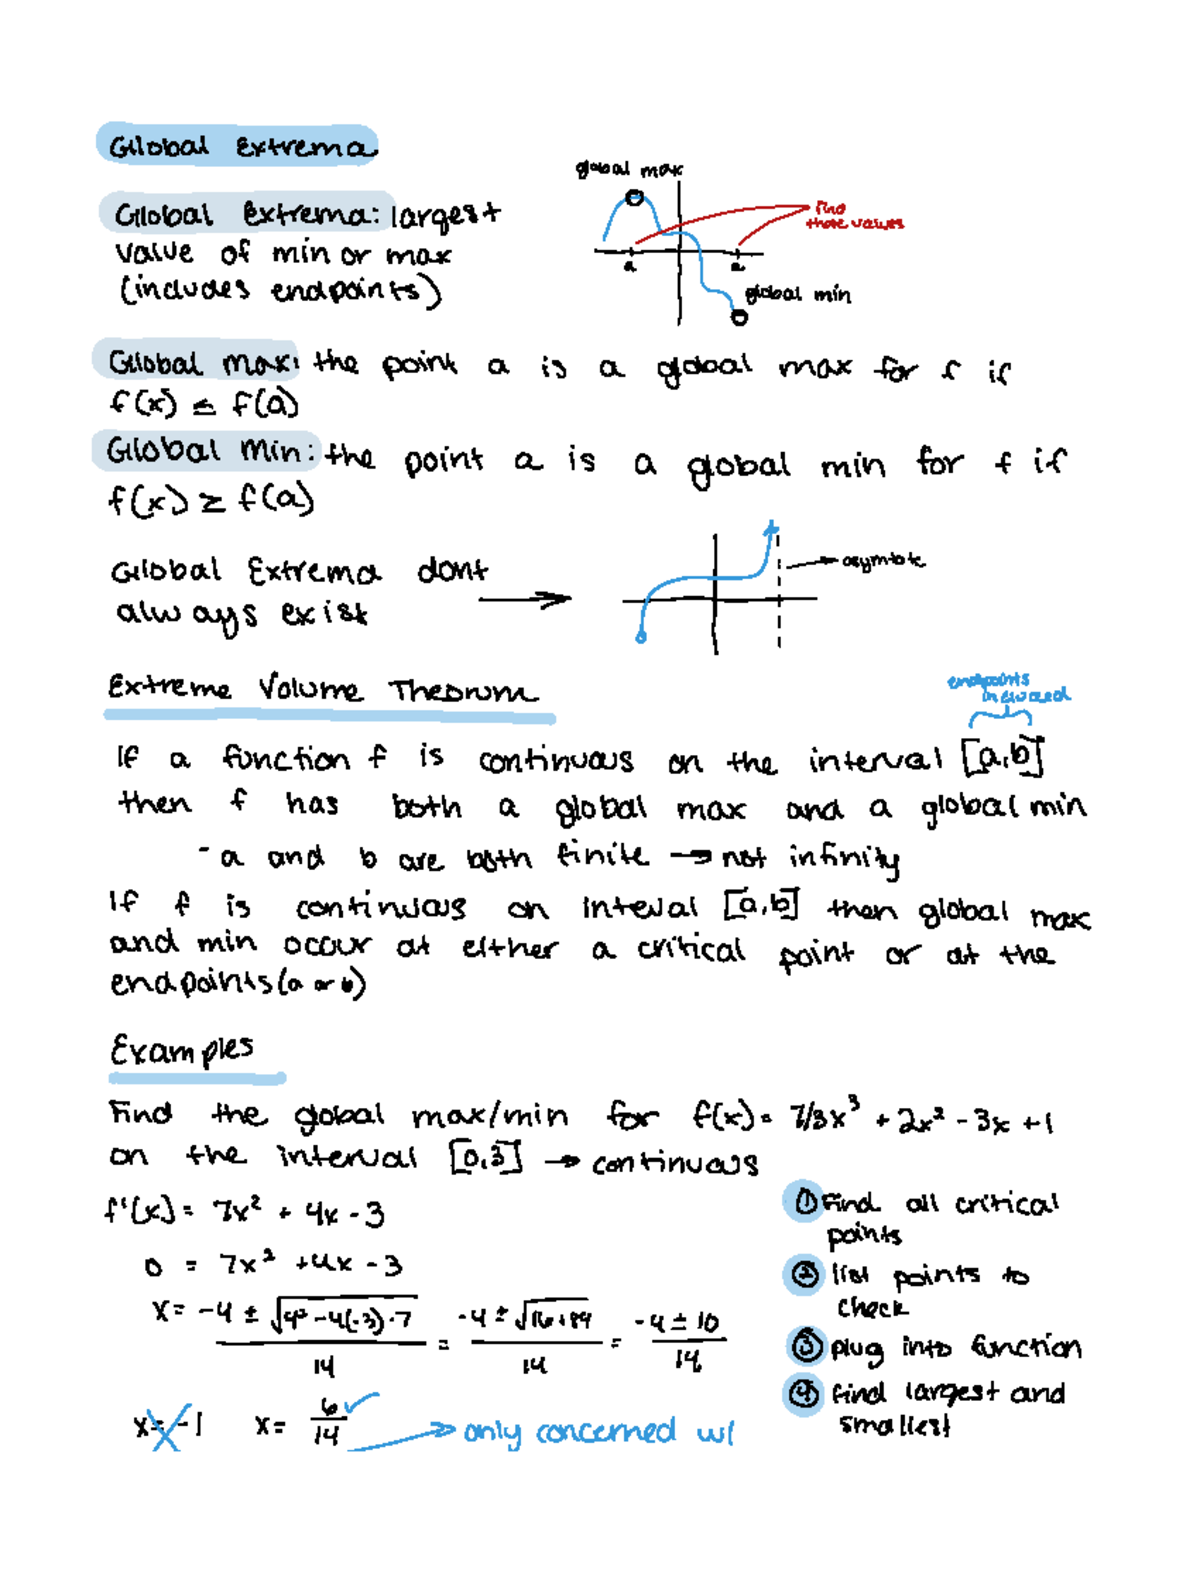 Global Extrema
global max
Global Extrema: largest
value of min or max
(includes endpoints)
find
those values
a
a
global min
Global max: the point a is a global max for f if
f(x) ≤ f(a)
Global Min: the point a is a global min for f if
f(x) ≥ f(a)
Global Extrema dont
always exist
asymtote
Extreme Volume Theorum
endpoints
included
If a function f is continuous on the interval [a,b]
then f has both a global max and a global min
- a and b are both finite → not infinity
If f is continuous on inteval [a,b] then global max
and min occur at either a critical point or at the
endpoints (a or b)
Examples
Find the global max/min for f(x) = 7/3x³ + 2x² - 3x + 1
on the interval [0,3] → continuous
f'(x) = 7x² + 4x - 3
0 = 7x² + 4x - 3
x = -4 ± √4² - 4(-3)·7 / 14 = -4 ± √16+84 / 14 = -4 ± 10 / 14
x = -1 x = 6/14 ✓ → only concerned w/
① Find all critical
points
② list points to
check
③ plug into function
④ find largest and
smallest